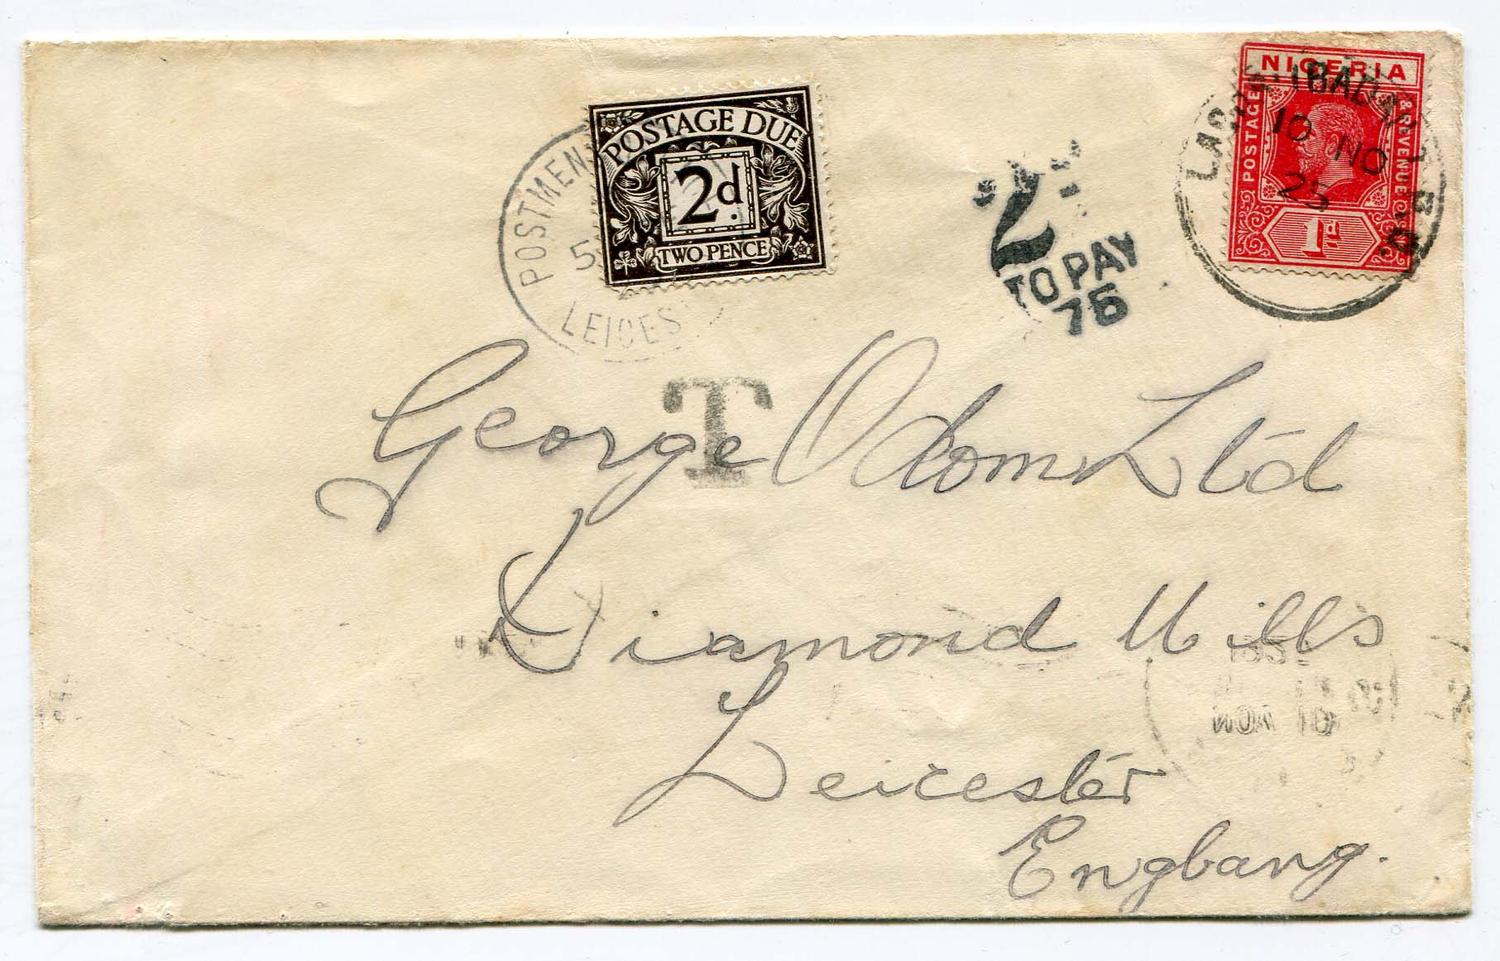 POSTAGE DUE
2d.
TWO PENCE
POSTMEN
5
LEICES
2d
TO PAY
76
NIGERIA
POSTAGE
& REVENUE
1d
IBADAN
10 NO
25
T
George Odom Ltd
Diamond Mills
Leicester
Engbang.
NOV 10